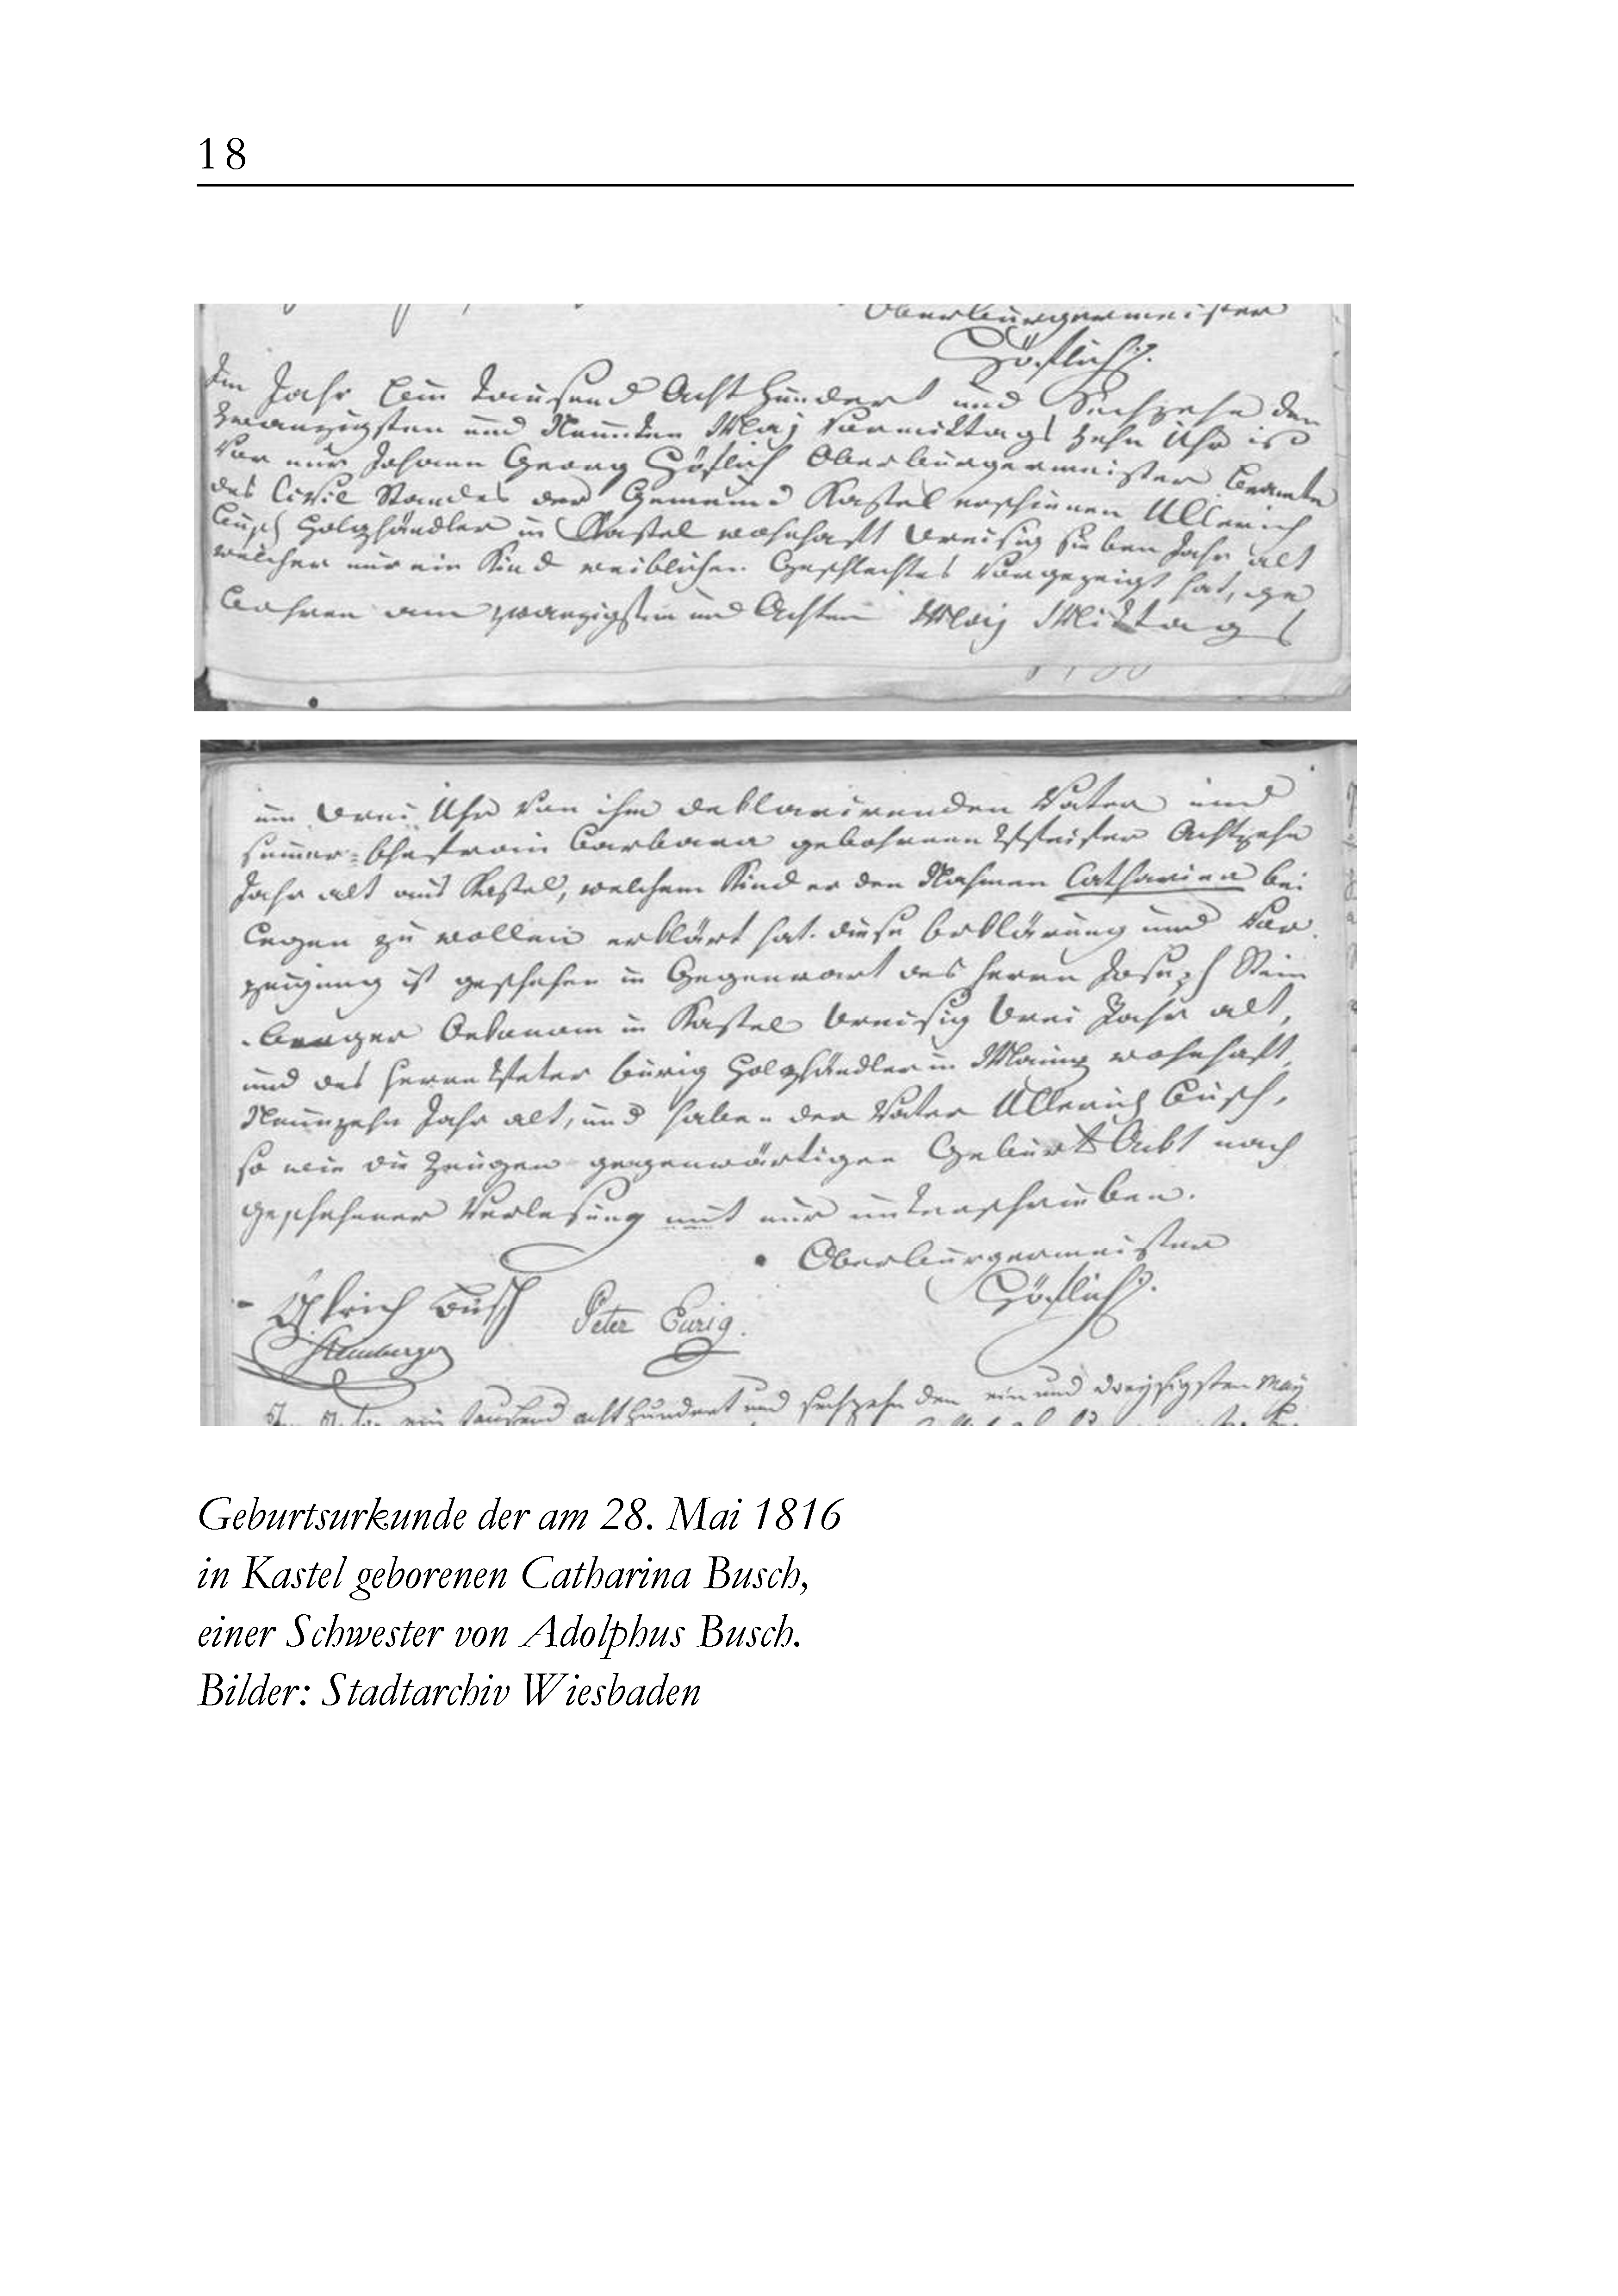 18
Oberbürgermeister
Höflich
Im Jahr Ein Tausend Acht Hundert und Sechzehn den
Zwanzigsten und Neunten Maj Vormittags zehn Uhr ist
Vor mir Johann Georg Höflich Oberbürgermeister Beamte
des Civil Standes der Gemeind Kastel erschienen Ullerich
Busch Holzhändler in Kastel wohnhaft Dreisig sieben Jahr alt
welcher mir ein Kind weiblichen Geschlechtes Vorgezeigt hat, ge
bohren am zwanzigsten und Achten Maij Mittags
um Drei Uhr Von ihm deklarirenden Vater und
seiner Ehefrau Barbara gebohrnen Pfeifer Achtzehn
Jahr alt aus Kastel, welchem Kind er den Nahmen Catharina bei
legen zu wollen erklärt hat. diese Erklärung und Vor
zeigung ist geschehen in Gegenwart des Herrn Joseph Stein
berger Oekonom in Kastel Dreisig Drei Jahr alt,
und des Herrn Peter Eurig Holzhändler in Mainz wohnhaft,
Neunzehn Jahr alt, und haben der Vater Ullerich Busch,
so wie die Zeugen gegenwärtigen Geburts Ackt nach
geschehener Verlesung mit mir unterschrieben.
Oberbürgermeister
Ullrich Busch Peter Eurig. Höflich
Steinberger
ein tausend acht hundert und sechzehn den ein und dreyssigsten May
Geburtsurkunde der am 28. Mai 1816
in Kastel geborenen Catharina Busch,
einer Schwester von Adolphus Busch.
Bilder: Stadtarchiv Wiesbaden